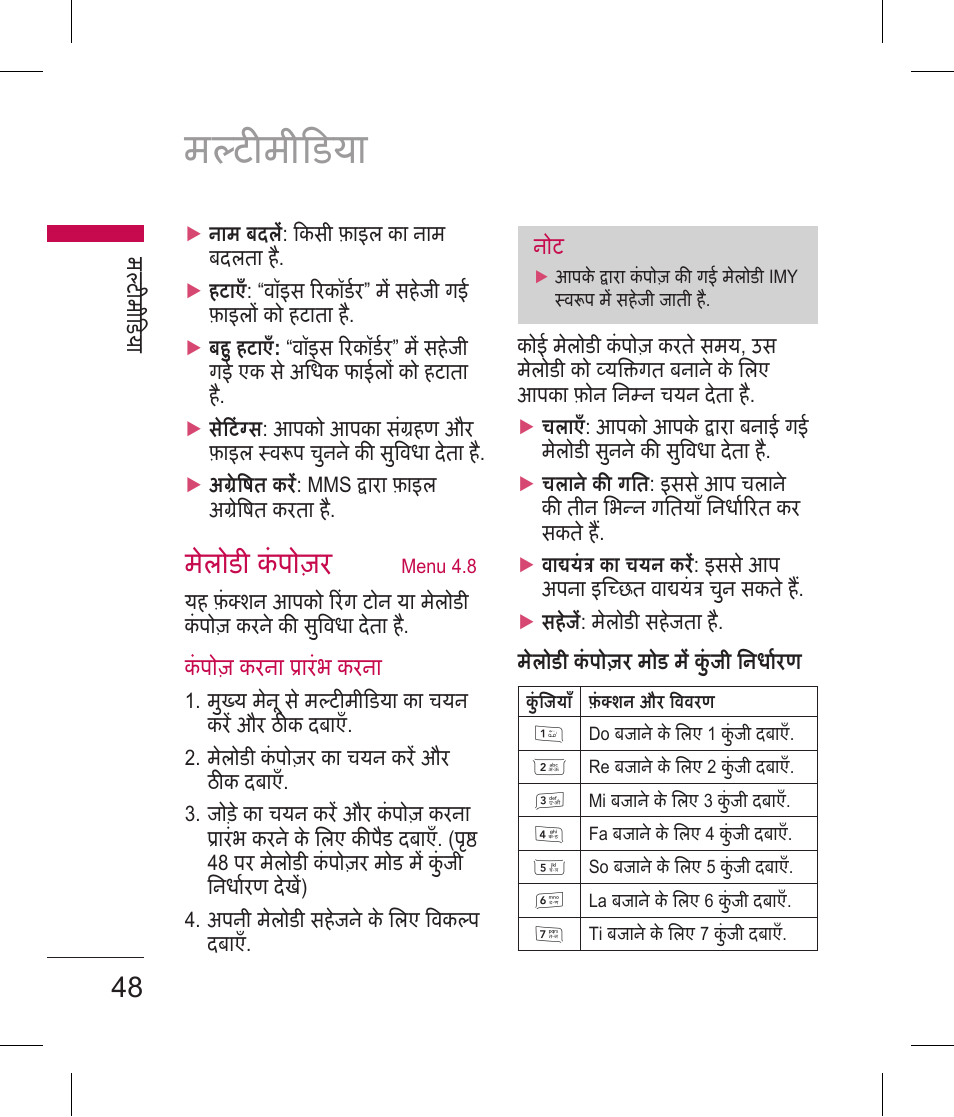 मल्टीमीडिया
मल्टीमीडिया
▶ नाम बदलें: किसी फ़ाइल का नाम
बदलता है.
▶ हटाएँ: “वॉइस रिकॉर्डर” में सहेजी गई
फ़ाइलों को हटाता है.
▶ बहु हटाएँ: “वॉइस रिकॉर्डर” में सहेजी
गई एक से अधिक फाईलों को हटाता
है.
▶ सेटिंग्स: आपको आपका संग्रहण और
फ़ाइल स्वरूप चुनने की सुविधा देता है.
▶ अग्रेषित करें: MMS द्वारा फ़ाइल
अग्रेषित करता है.
मेलोडी कंपोज़र Menu 4.8
यह फ़ंक्शन आपको रिंग टोन या मेलोडी
कंपोज़ करने की सुविधा देता है.
कंपोज़ करना प्रारंभ करना
1. मुख्य मेनू से मल्टीमीडिया का चयन
करें और ठीक दबाएँ.
2. मेलोडी कंपोज़र का चयन करें और
ठीक दबाएँ.
3. जोड़े का चयन करें और कंपोज़ करना
प्रारंभ करने के लिए कीपैड दबाएँ. (पृष्ठ
48 पर मेलोडी कंपोज़र मोड में कुंजी
निर्धारण देखें)
4. अपनी मेलोडी सहेजने के लिए विकल्प
दबाएँ.
नोट
▶ आपके द्वारा कंपोज़ की गई मेलोडी IMY
स्वरूप में सहेजी जाती है.
कोई मेलोडी कंपोज़ करते समय, उस
मेलोडी को व्यक्तिगत बनाने के लिए
आपका फ़ोन निम्न चयन देता है.
▶ चलाएँ: आपको आपके द्वारा बनाई गई
मेलोडी सुनने की सुविधा देता है.
▶ चलाने की गति: इससे आप चलाने
की तीन भिन्न गतियाँ निर्धारित कर
सकते हैं.
▶ वाद्ययंत्र का चयन करें: इससे आप
अपना इच्छित वाद्ययंत्र चुन सकते हैं.
▶ सहेजें: मेलोडी सहेजता है.
मेलोडी कंपोज़र मोड में कुंजी निर्धारण
कुंजियाँ फ़ंक्शन और विवरण
1 Do बजाने के लिए 1 कुंजी दबाएँ.
2 abc Re बजाने के लिए 2 कुंजी दबाएँ.
3 def Mi बजाने के लिए 3 कुंजी दबाएँ.
4 ghi Fa बजाने के लिए 4 कुंजी दबाएँ.
5 jkl So बजाने के लिए 5 कुंजी दबाएँ.
6 mno La बजाने के लिए 6 कुंजी दबाएँ.
7 pqrs Ti बजाने के लिए 7 कुंजी दबाएँ.
48